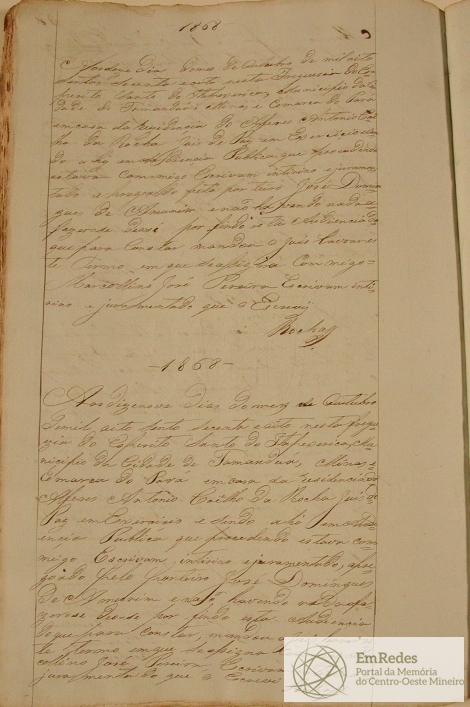 1868
dia do mes de Outubro de mil oito
sentos secenta e oito nesta Freguesia do Es-
pirito Santo de Itapecerica, Municipio da Ci-
dade de Tamanduá Minas e Comarca do Pará
em casa da residencia do Alferes Antonio Coe-
lho da Rocha Juis de Paz em Exercicio sen-
do ahi em Audiencia Publica que procedendo
estava commigo Escrivam intirino e juramen-
tado a pregoado feito por José Domin-
gues de Amurim e não havendo nada a
fazer se deuse por findo esta Audiencia do
que para Constar mandou o Juis lavrar es-
te termo em que se assigna Commigo
Marcollino José Pereira Escrivam inti-
rino e juramentado que o Escrevi
Rocha
-1868-
Aos dizenove dias do mes de Outubro
de mil, oito sento secenta e oito nesta fregue-
zia do Espirito Santo de Itapecerica, Mu-
nicipio da Cidade de Tamanduá, Minas e
Comarca do Pará em casa da residencia do
Alferes Antonio Coelho da Rocha Juis de
Paz em Exercicio e sendo ahi em Audi-
encia Publica que procedendo estava com-
migo Escrivam intirino e juramentado, apre-
goado pelo Porteiro José Domingues
de Amurim e não havendo nada a fa-
zer se deuse por findo esta Audiencia
do que para Constar, mandou
te termo em que se assigna
collino José Pereira, Escrivam
juramentado que o Escrevi
EmRedes
Portal da Memória
do Centro-Oeste Mineiro